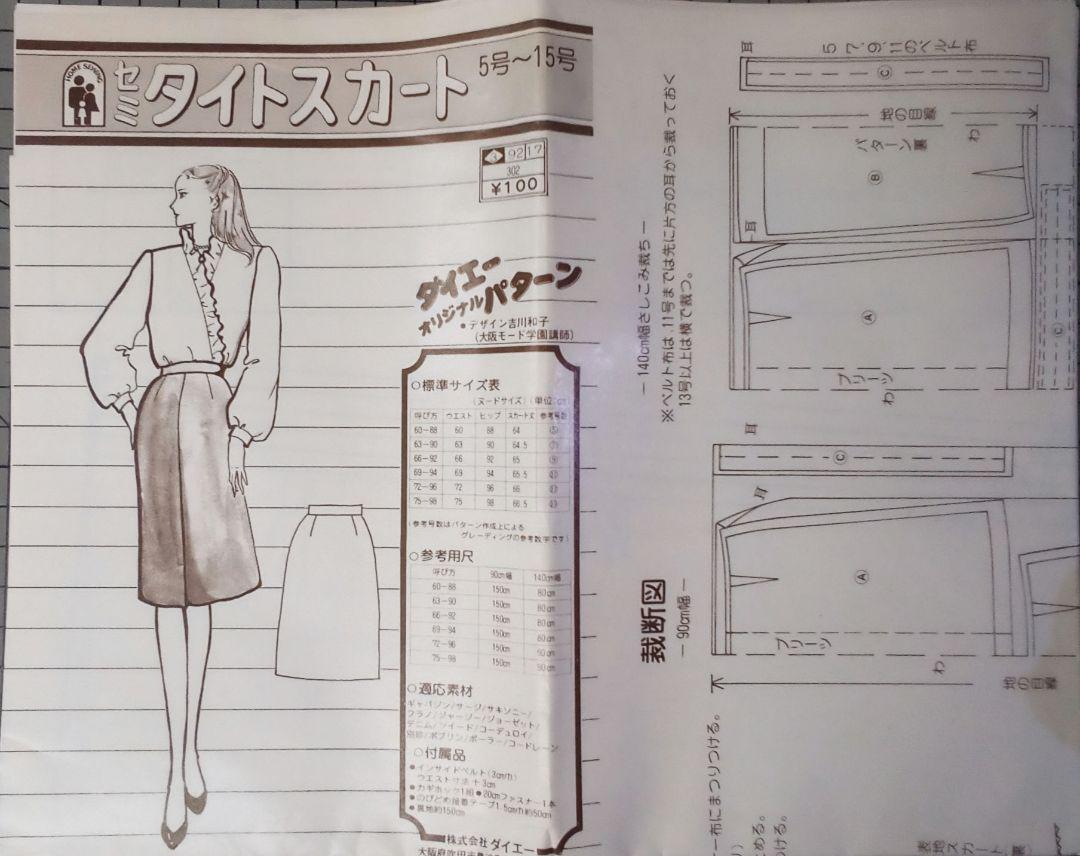 HOME SEWING
セミタイトスカート 5号〜15号
9217
302
¥100
ダイエー
オリジナルパターン
●デザイン吉川和子
(大阪モード学園講師)
○標準サイズ表
(ヌードサイズ) (単位:cm)
呼び方 ウエスト ヒップ スカート丈 参考号数
60−88 60 88 64 ⑤
63−90 63 90 64.5 ⑦
66−92 66 92 65 ⑨
69−94 69 94 65.5 ⑪
72−96 72 96 66 ⑬
75−98 75 98 66.5 ⑮
(参考号数はパターン作成上による
グレーディングの参考数字です)
○参考用尺
呼び方 90cm幅 140cm幅
60−88 150cm 80cm
63−90 150cm 80cm
66−92 150cm 80cm
69−94 150cm 80cm
72−96 150cm 90cm
75−98 150cm 90cm
○適応素材
ギャバジン/サージ/サキソニー/
フラノ/ジャージー/ジョーゼット/
デニム/ツイード/コーデュロイ/
別珍/ポプリン/ポーラー/コードレーン
○付属品
●インサイドベルト(3cm巾)
ウエスト寸法+3cm
●カギホック1組 ●20cmファスナー1本
●のびどめ接着テープ1.5cm巾約50cm
●裏地約150cm
株式会社ダイエー
大阪府吹田市
裁断図
−90cm幅−
−140cm幅さしこみ裁ち−
※ベルト布は、11号までは先に片方の耳から裁っておく
13号以上は横で裁つ。
耳
5、7、9、11のベルト布
Ⓒ
地の目線
わ
パターン裏
Ⓑ
耳
Ⓐ
プリーツ
わ
Ⓒ
耳
Ⓒ
耳
Ⓐ
プリーツ
わ
地の目線
ー布にまつりつける。
とめる。
つける。
表地スカート(裏)